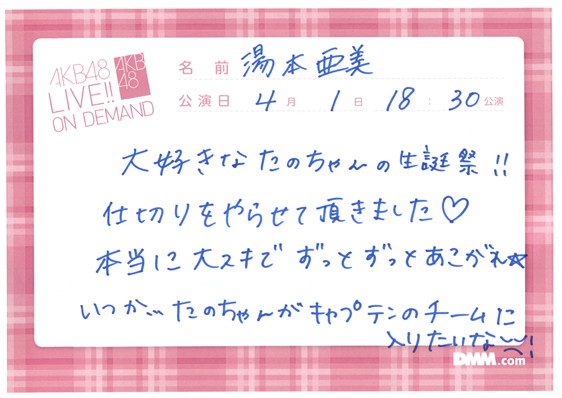 AKB48
LIVE!!
ON DEMAND
AKB
48
名前 湯本亜美
公演日 4月1日 18:30公演
大好きなたのちゃんの生誕祭!!
仕切りをやらせて頂きました♡
本当に大スキでずっとずっとあこがれ☆
いつか…たのちゃんがキャプテンのチームに
入りたいな〜〜!
DMM.com